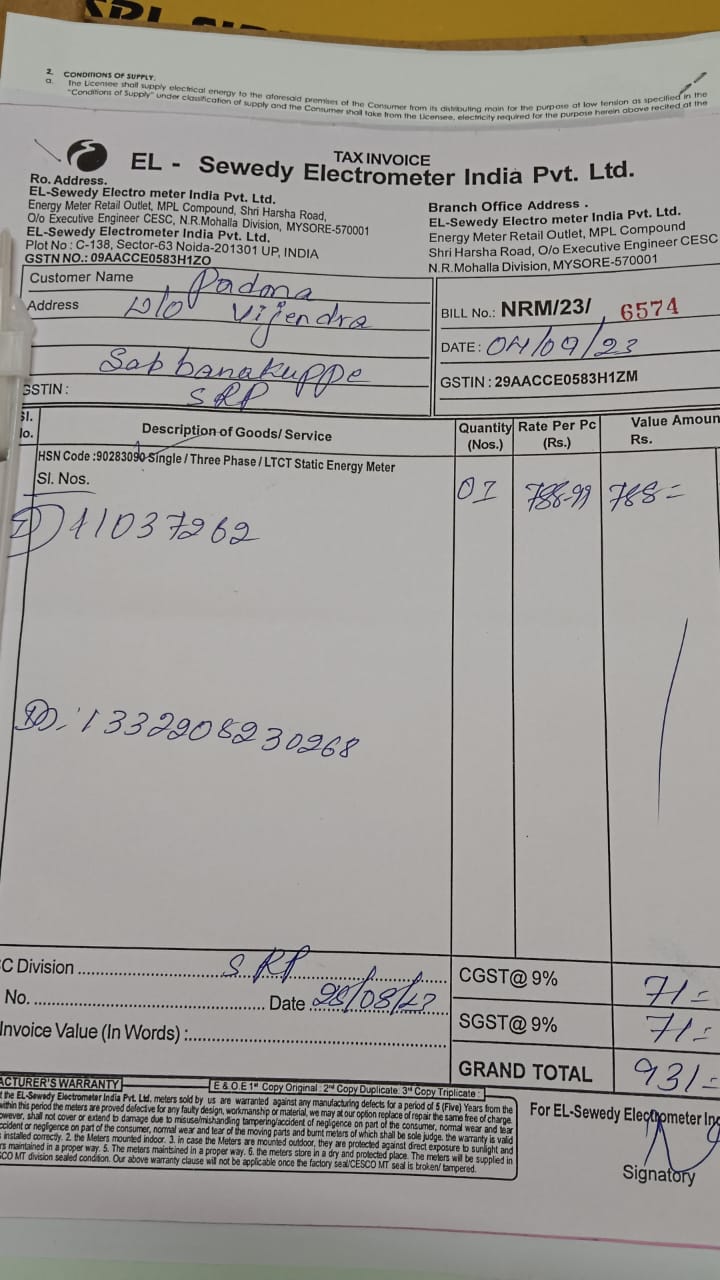 2. CONDITIONS OF SUPPLY.
a. The Licensee shall supply electrical energy to the aforesaid premises of the Consumer from its distributing main for the purpose at low tension as specified in the
"Conditions of Supply" under classification of supply and the Consumer shall take from the Licensee, electricity required for the purpose herein above recited at the
TAX INVOICE
EL - Sewedy Electrometer India Pvt. Ltd.
Ro. Address.
EL-Sewedy Electro meter India Pvt. Ltd.
Energy Meter Retail Outlet, MPL Compound, Shri Harsha Road,
O/o Executive Engineer CESC, N.R.Mohalla Division, MYSORE-570001
EL-Sewedy Electrometer India Pvt. Ltd.
Plot No : C-138, Sector-63 Noida-201301 UP, INDIA
GSTN NO.: 09AACCE0583H1ZO
Branch Office Address .
EL-Sewedy Electro meter India Pvt. Ltd.
Energy Meter Retail Outlet, MPL Compound
Shri Harsha Road, O/o Executive Engineer CESC
N.R.Mohalla Division, MYSORE-570001
Customer Name Padma
Address W/o Vijendra
Sabbanakuppe
GSTIN : SRP
BILL No.: NRM/23/ 6574
DATE : 04/09/23
GSTIN : 29AACCE0583H1ZM
Sl. No. Description of Goods/ Service Quantity (Nos.) Rate Per Pc (Rs.) Value Amoun Rs.
HSN Code :90283090 Single / Three Phase / LTCT Static Energy Meter
Sl. Nos. 01 788-99 788=
1) 11037262
1332208230268
C Division SRP
No. Date 28/08/23
Invoice Value (In Words) :
CGST@ 9% 71=
SGST@ 9% 71=
GRAND TOTAL 931=
ACTURER'S WARRANTY E & O.E 1st Copy Original : 2nd Copy Duplicate 3rd Copy Triplicate :
the EL-Sewedy Electrometer India Pvt. Ltd, meters sold by us are warranted against any manufacturing defects for a period of 5 (Five) Years from the
within this period the meters are proved defective for any faulty design, workmanship or material, we may at our option replace of repair the same free of charge.
owever, shall not cover or extend to damage due to misuse/mishanding tampering/accident of negligence on part of the consumer, normal wear and tear
ccident or negligence on part of the consumer, normal wear and tear of the moving parts and burnt meters of which shall be sole judge. the warranty is valid
installed correctly. 2. the Meters mounted indoor. 3. in case the Meters are mounted outdoor, they are protected against direct exposure to sunlight and
rs maintained in a proper way. 5. The meters maintsined in a proper way. 6. the meters store in a dry and protected place. The meters will be supplied in
CO MT division sealed condition. Our above warranty clause will not be applicable once the factory seal/CESCO MT seal is broken/ tampered.
For EL-Sewedy Electrometer Ind
Signatory